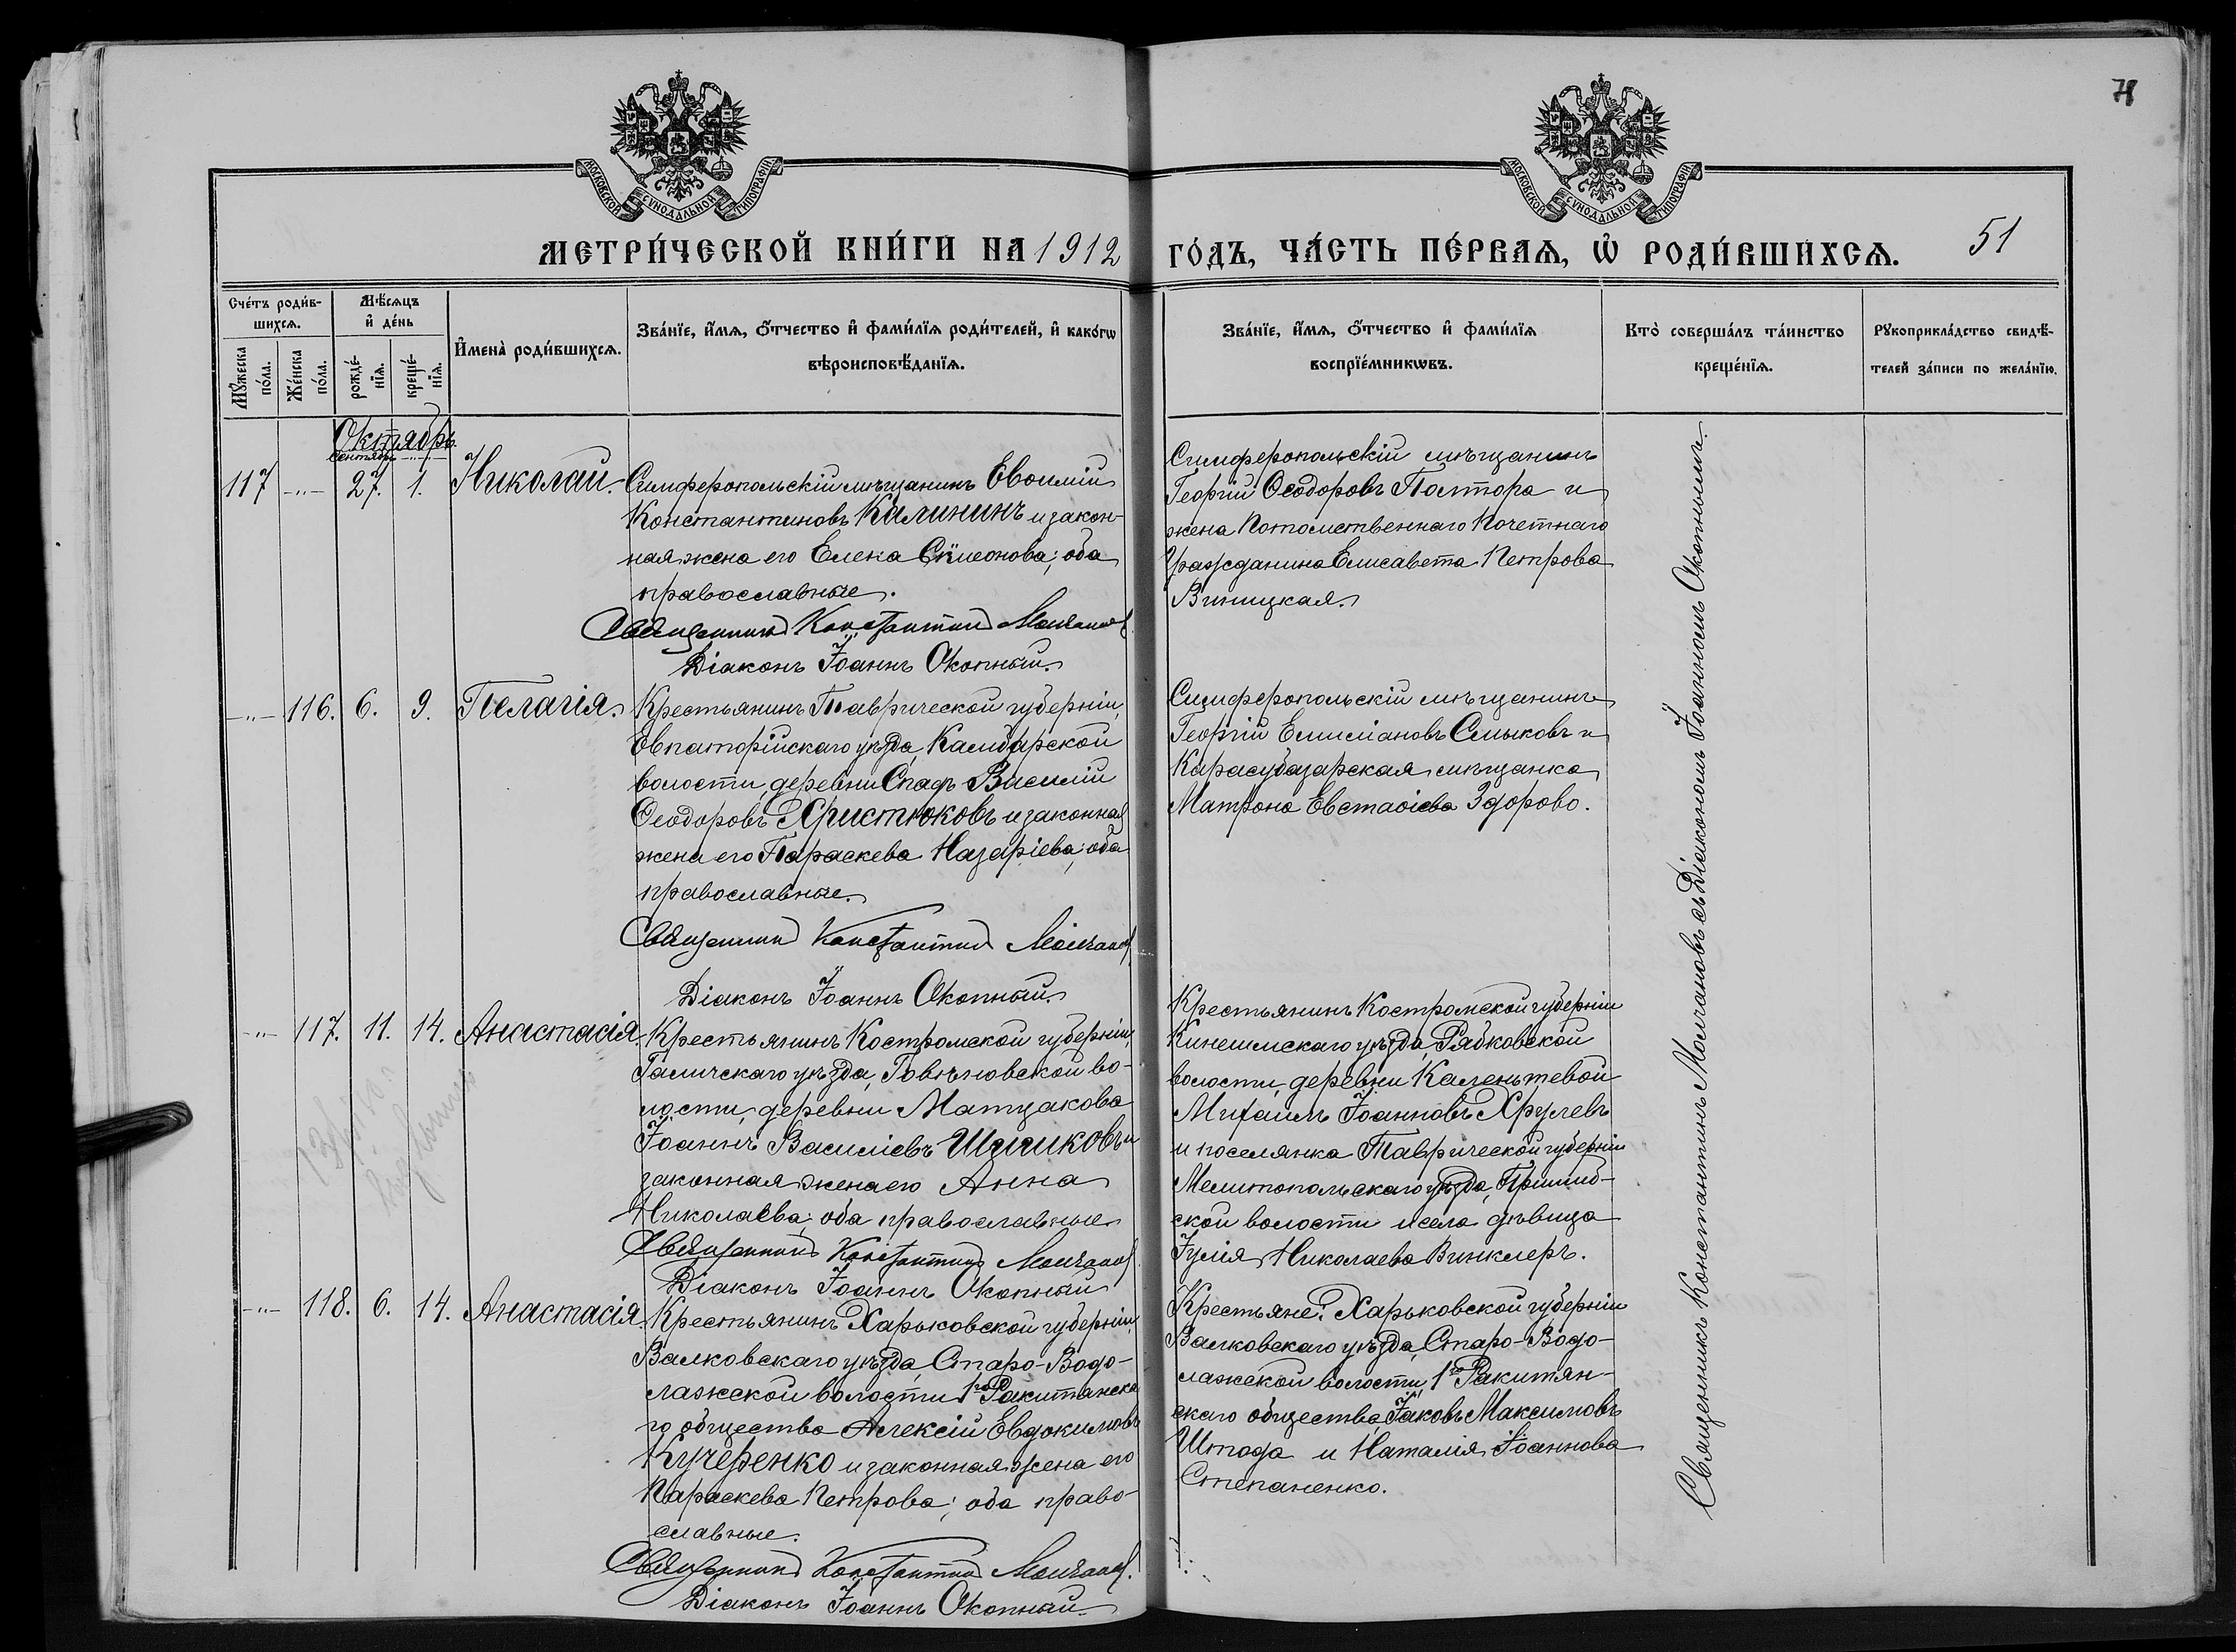 78
МОСКОВСКОЙ СУНОДАЛЬНОЙ ТИПОГРАФІИ
МОСКОВСКОЙ СУНОДАЛЬНОЙ ТИПОГРАФІИ
МЕТРИ́ЧЕСКОЙ КНИ́ГИ НА 1912 ГО́ДЪ, ЧА́СТЬ ПЕ́РВАѦ, Ѡ҆ РОДИ́ВШИХСѦ. 51
Сче́тъ роди́в-
шихсѧ.
Мꙋ́жеска по́ла.
Же́нска по́ла.
Мѣ́сѧцъ и҆ де́нь
рожде́-
нїѧ.
креще́-
нїѧ.
И҆мена̀ роди́вшихсѧ.
Зва́нїе, и҆́мѧ, ѻ҆́тчество и҆ фами́лїѧ роди́телей, и҆ како́гѡ
вѣроисповѣ́данїѧ.
Зва́нїе, и҆́мѧ, ѻ҆́тчество и҆ фами́лїѧ
воспрїе́мникѡвъ.
Кто̀ соверша́лъ та́инство
креще́нїѧ.
Рꙋкоприкла́дство свидѣ́-
телей за́писи по жела́нїю.
Октябрь
Сентябрь
117 -"- 27. 1. Николай. Симферопольскій мѣщанинъ Евѳимій
Константиновъ Калининъ и закон-
ная жена его Елена Сѵмеонова; оба
православные.
Священникъ Константинъ Молчановъ
Діаконъ Іоаннъ Окопный.
Симферопольскій мѣщанинъ
Георгій Ѳеодоровъ Полтора и
жена Потомственнаго Почетнаго
Гражданина Елисавета Петрова
Виницкая.
-"- 116. 6. 9. Пелагія. Крестьянинъ Таврической губерніи,
Евпаторійскаго уѣзда, Камбарской
волости, деревни Спаф Василій
Ѳеодоровъ Христюковъ и законная
жена его Параскева Назаріева; оба
православные.
Священникъ Константинъ Молчановъ
Діаконъ Іоаннъ Окопный.
Симферопольскій мѣщанинъ
Георгій Емиліановъ Смыковъ и
Карасубазарская мѣщанка
Матрона Евстаѳіева Здорово.
-"- 117. 11. 14. Анастасія. Крестьянинъ Костромской губерніи,
Галичскаго уѣзда, Говѣновской во-
лости, деревни Матцакова
Іоаннъ Василіевъ Шишковъ и
законная жена его Анна
Николаева; оба православные
Священникъ Константинъ Молчановъ
Діаконъ Іоаннъ Окопный
Крестьянинъ Костромской губерніи
Кинешмскаго уѣзда, Рябковской
волости, деревни Каленьтевой
Михаилъ Іоанновъ Хрулевъ
и поселянка Таврической губерніи
Мелитопольскаго уѣзда, Пришиб-
ской волости и села дѣвица
Іулія Николаева Винклеръ.
-"- 118. 6. 14. Анастасія. Крестьянинъ Харьковской губерніи,
Валковскаго уѣзда, Старо-Водо-
лажской волости 1го Ракитянска
го общества Алексій Евдокимовъ
Кучеренко и законная жена его
Параскева Петрова; оба право-
славные.
Священникъ Константинъ Молчановъ.
Діаконъ Іоаннъ Окопный.
Крестьяне: Харьковской губерніи
Валковскаго уѣзда, Старо-Водо-
лажской волости, 1го Ракитян-
скаго общества, Іаковъ Максимовъ
Штода и Наталія Іоаннова
Степаненко.
Священникъ Константинъ Молчановъ съ Діакономъ Іоанномъ Окопнымъ.